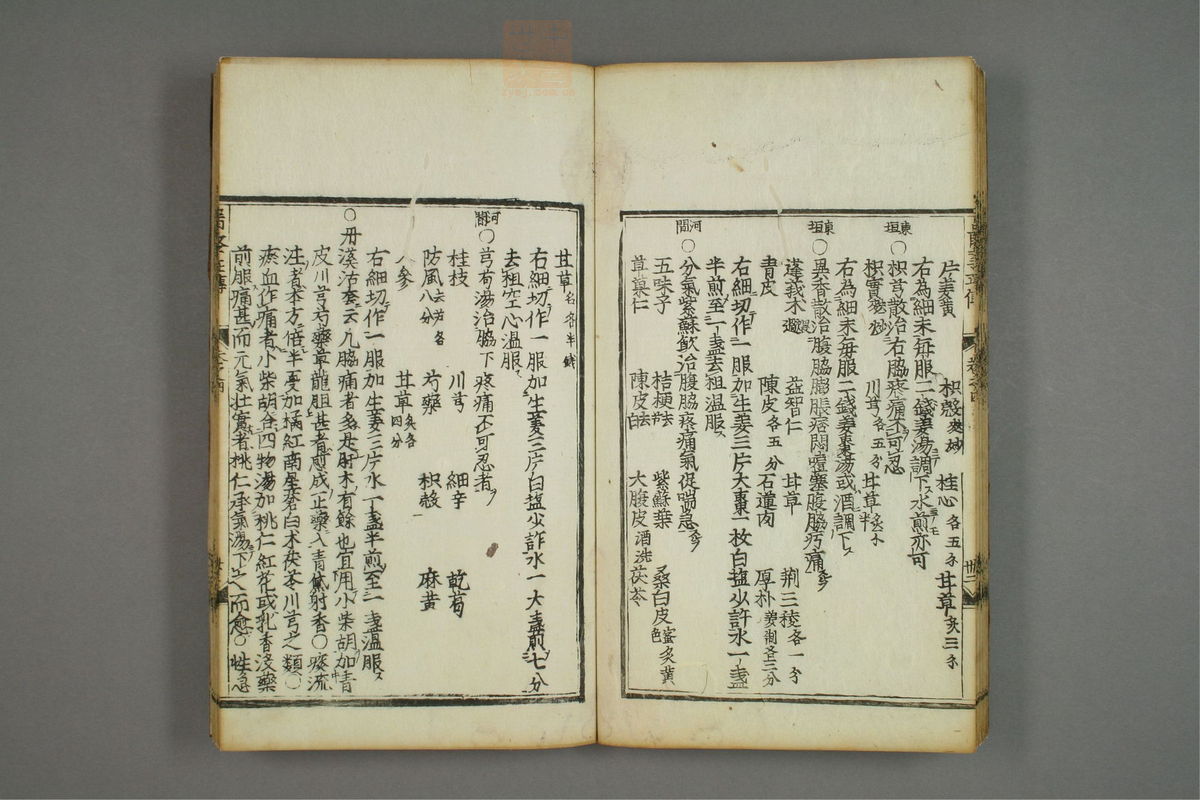 片姜黄 枳殻 麥炒 桂心 各五分 甘草 炙三分
右為細末毎服二銭姜湯調下水煎亦可
東垣 ○枳芎散治右脇疼痛不可忍
枳實 麥炒 川芎 各五分 甘草 半炙
右為細末毎服二銭姜棗湯或酒調下
東垣 ○異香散治腹脇膨脹痞悶噎塞腹脇疞痛
蓬莪朮 益智仁 甘草 荆三稜 各一分
青皮 陳皮 各五分 石蓮肉 厚朴 姜制各三分
右細切作一服加生姜三片大棗一枚白塩少許水一盞
半煎至一盞去粗温服
河間 ○分氣紫蘇飲治腹脇疼痛氣促喘急
五味子 桔梗 去 紫蘇葉 桑白皮 蜜炙黄色
草菓仁 陳皮 去白 大腹皮 酒洗 茯苓
甘草 各半銭
右細切作一服加生姜三片白塩少許水一大盞煎七分
去粗空心温服
河間 ○芎葛湯治脇下疼痛不可忍者
桂枝 川芎 細辛 乾葛
防風 八分 芍藥 枳殻 麻黄
人參 甘草 四分
右細切作一服加生姜三片水一盞半煎至一盞温服
○丹溪活套云凡脇痛者多是肝木有餘也宜用小柴胡加青
皮川芎芍藥草龍胆甚者煎成正藥入青黛射香○痰流
注者本方倍半夏加橘紅南星蒼白朮茯苓川芎之類○
瘀血作痛者小柴胡合四物湯加桃仁紅花或乳香没藥
前服痛甚而元氣壯實者桃仁承氣湯下之而愈○性急